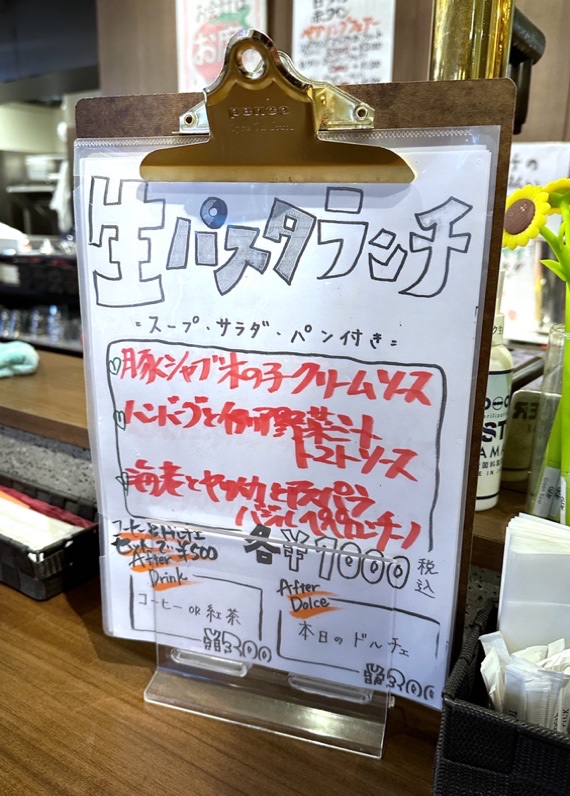 penco
生パスタランチ
=スープ・サラダ・パン付き=
豚しゃぶ木の子クリームソース
ハンバーグと
野菜
トマトソース
海老とヤリイカとアスパラ
バジルペペロンチーノ
各¥1000 税込
コーヒー&ドルチェ
セットで¥500
After
Drink
コーヒー OR 紅茶
単品300
After
Dolce
本日のドルチェ
単品300